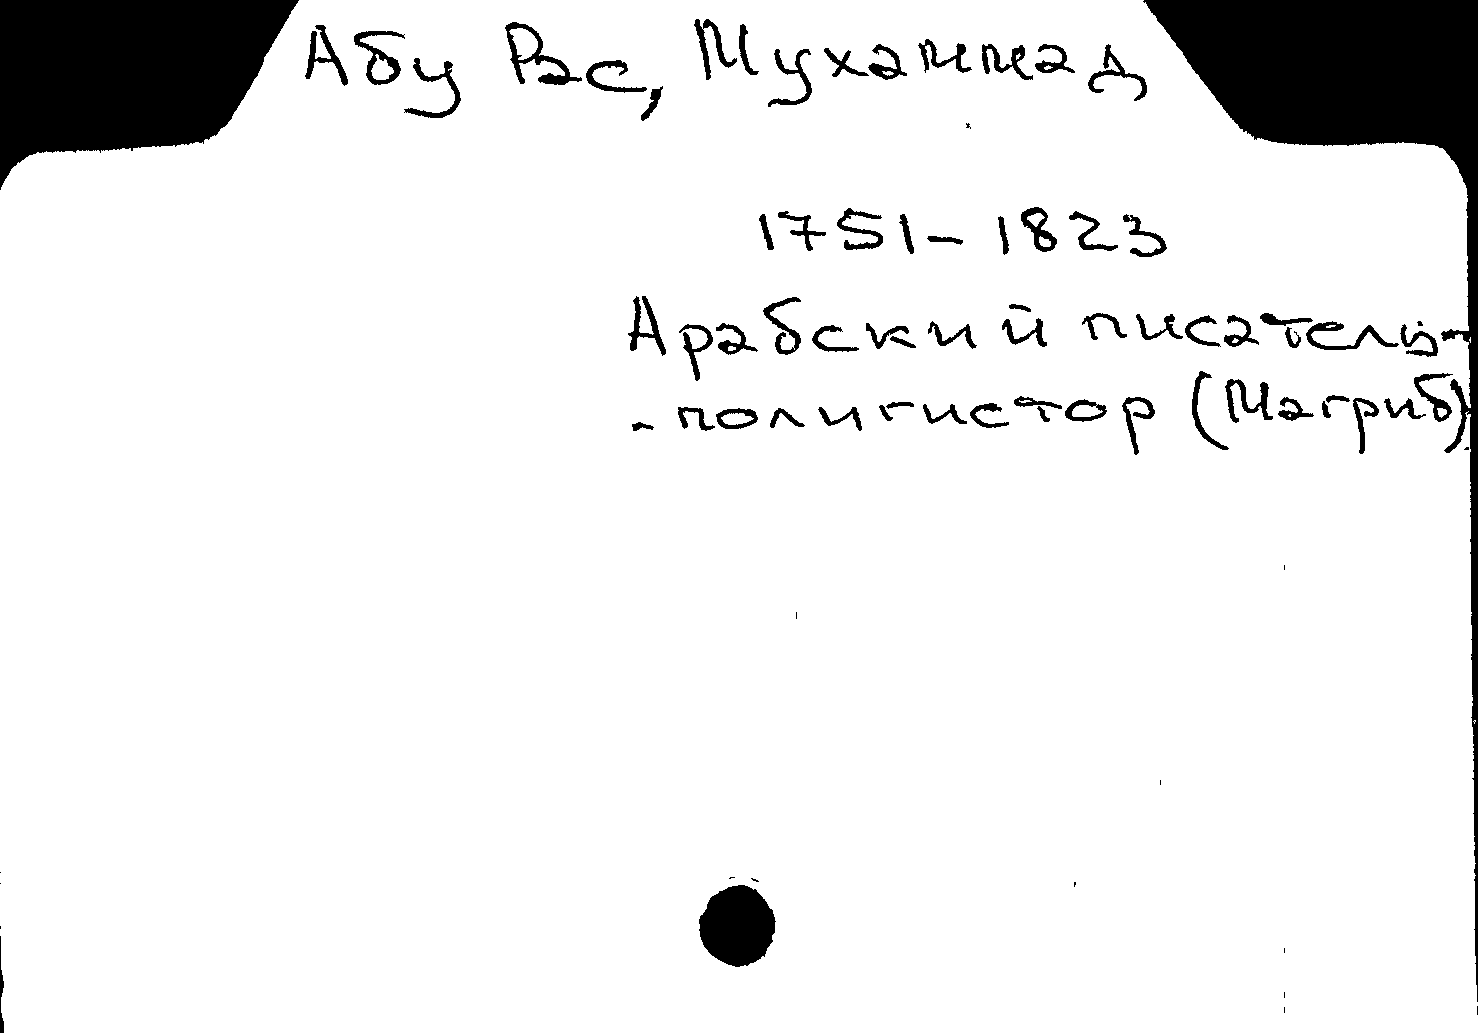 Абу Рас, Мухаммад
1751-1823
Арабский писатель-
-полигистор (Магриб)